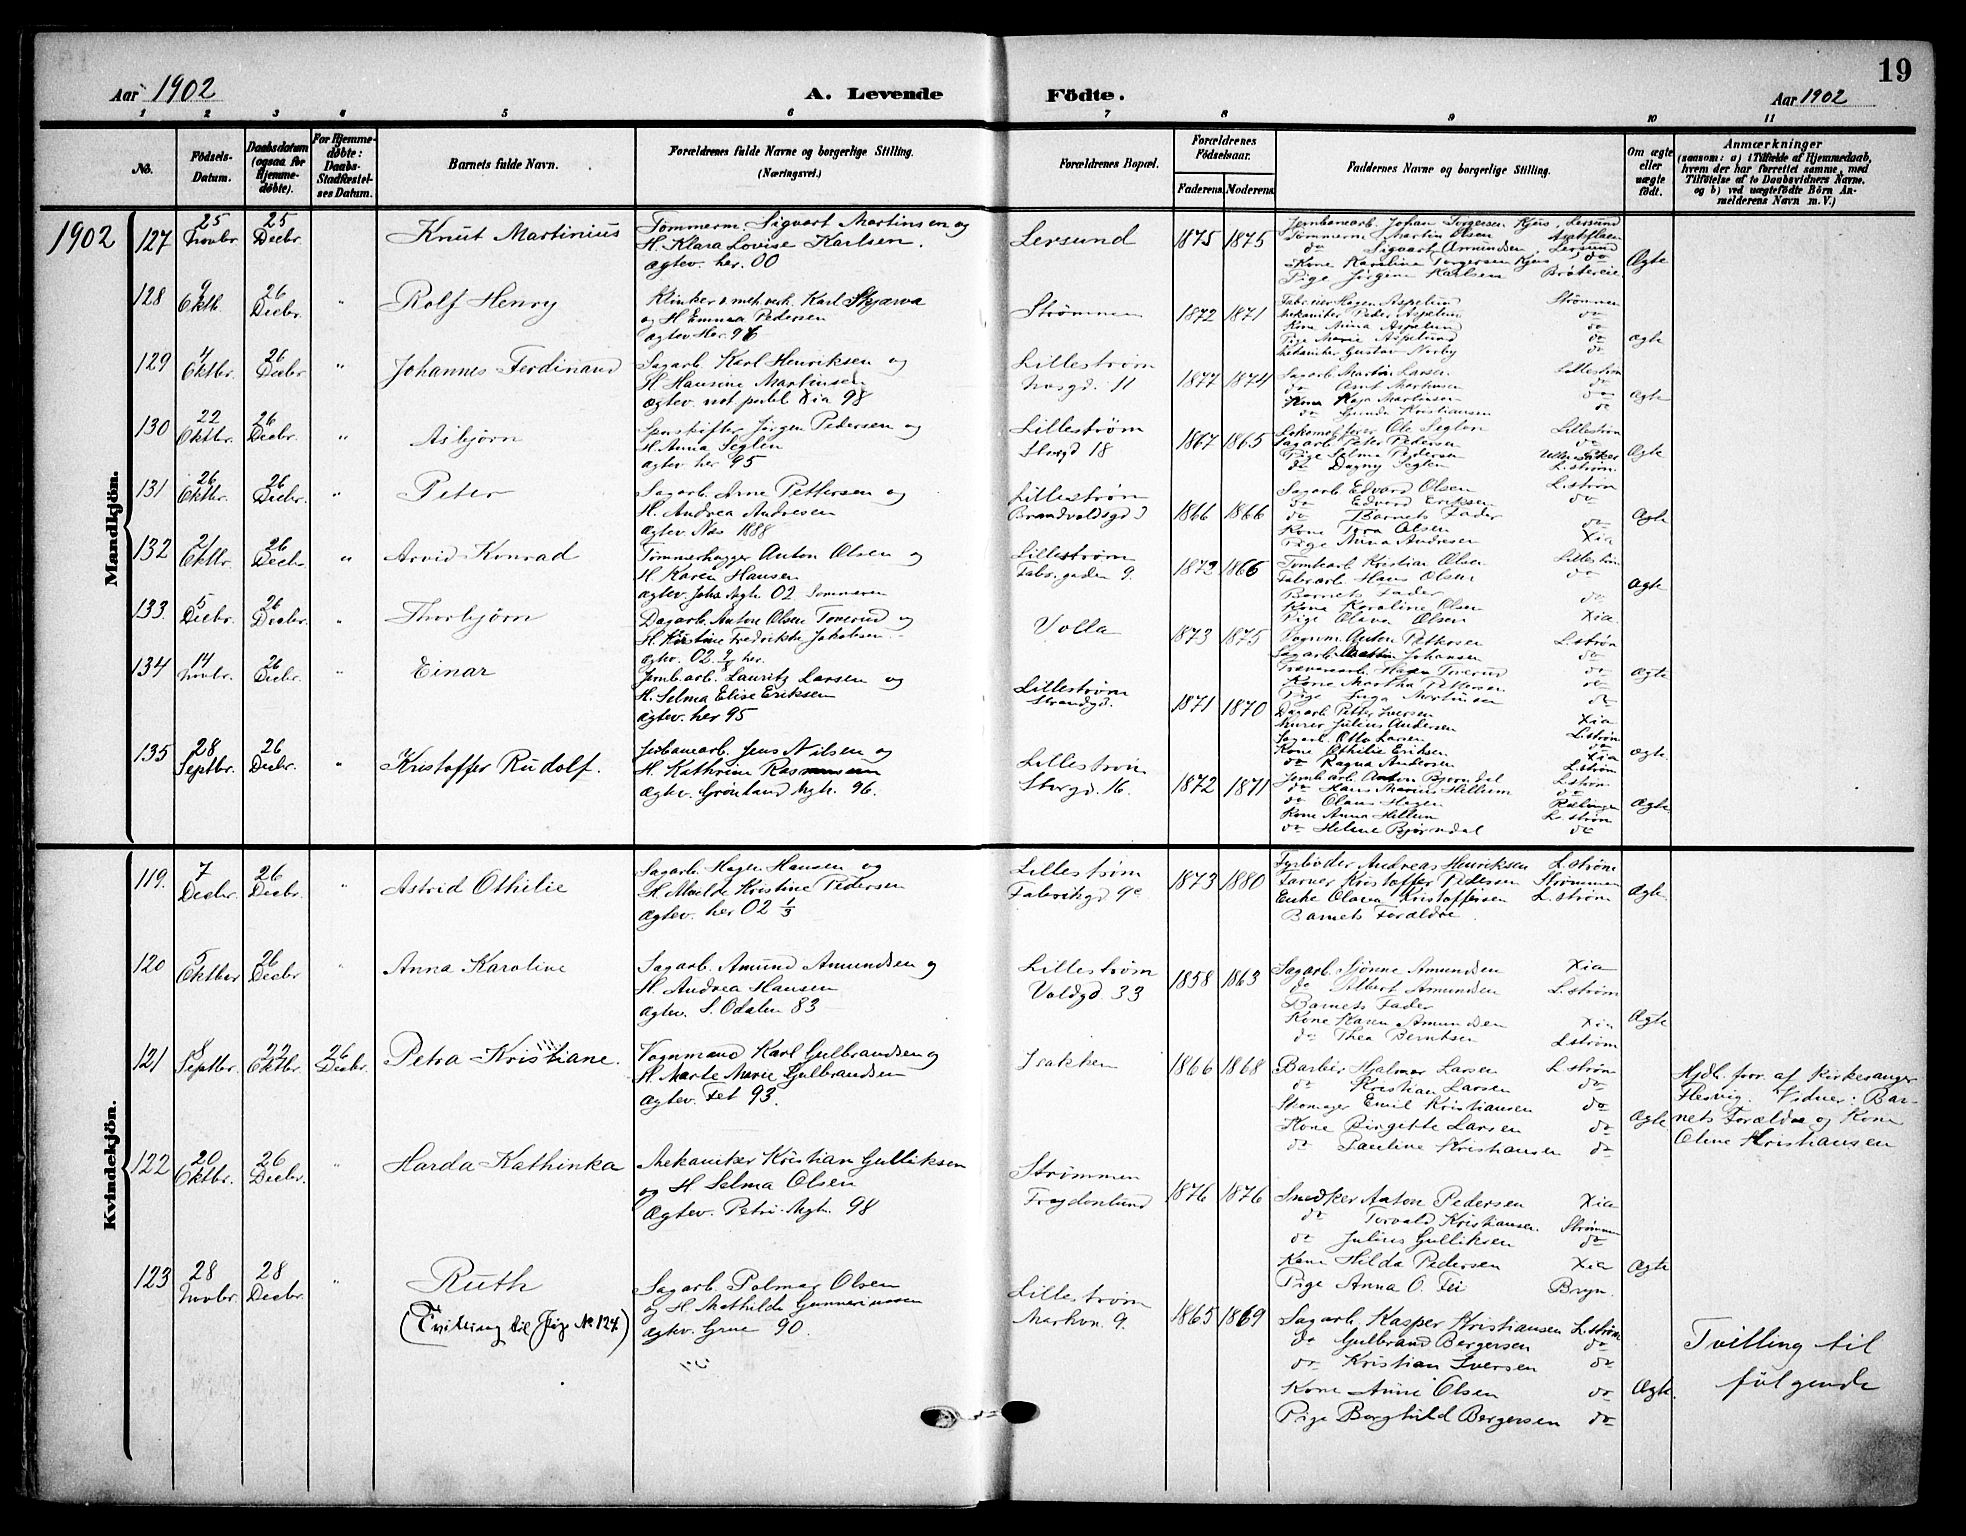 19
Aar 1902
A. Levende Födte.
Aar 1902
1 2 3 4 5 6 7 8 9 10 11
No.
Födsels-Datum.
Daabsdatum (ogsaa for Hjemme-döbte).
For Hjemme-döbte: Daabs-Stadfæstel-ses Datum.
Barnets fulde Navn.
Forældrenes fulde Navne og borgerlige Stilling. (Næringsvei.)
Forældrenes Bopæl.
Forældrenes Födselsaar.
Faderens Moderens
Faddernes Navne og borgerlige Stilling.
Om ægte eller uægte födt.
Anmærkninger
(saasom: a) i Tilfælde af Hjemmedaab, hvem der har forrettet samme, med Tilföielse af to Daabsvidners Navne, og b) ved uægtefödte Börn An-melderens Navn m. V.)
Mandkjön.
1902
127 25 Novbr. 25 Decbr. Knut Martinius
Tømmerm. Sigvart Martinsen og
H. Klara Lovise Karlsen.
Ægtev. her. 00
Lersund 1875 1875
Jernbanearb. Johan Torgersen Kjus, Lersund
Tømmerm. Martin Olsen
do Sigvart Amundsen, Lersund
Kone Karoline Torgersen Kjus, do
Pige Jørgine Karlsen
Ægte
128 9 Oktb. 26 Decbr. " Rolf Henry
og H Emma Pedersen
Ægtev Her. 96
Strømmen 1872 1871
Hagen Aspelund Strømmen
Mekaniker Peder Aspelund do
Kone Mina Aspelund do
Pige Marie Aspelund do
Mekaniker Gustav Norby do
Ægte
129 4 Oktbr. 26 Decbr. " Johannes Ferdinand
Sagarb. Karl Henriksen og
H. Hansine Martinsen
Ægtev. not. publ. Xia 98
Lillestrøm 11 1877 1874
Sagarb. Martin Larsen Lillestrøm
do
Kone Kaja Martinsen do
do Gunda Kristiansen do
Ægte
130 22 Oktbr. 26 Decbr. " Asbjørn
Jørgen Pedersen og
H. Anna Seglen
Ægtev her 95
Lillestrøm
Storgd 18 1867 1865
Ole Seglen Lillestrøm
Sagarb. Peter Pedersen do
Pige Selma Pedersen
do Dagny Seglen L.strøm
Ægte
131 26 Oktbr. 26 Decbr. " Peter
Sagarb. Arne Pettersen og
H. Andrea Andresen
Ægtev Næs 1888
Lillestrøm
Brandvoldsgd 3 1866 1866
Sagarb. Edvard Olsen L.strøm
do Edvard Eriksen do
do Barnets Fader
Kone Tora Olsen do
Pige Anna Andresen Xia
Ægte
132 21 Oktbr. 26 Decbr. " Arvid Konrad
Tømmerhugger Anton Olsen og
H. Karen Hansen
Ægtev. Johs. Mgh. 02
Lillestrøm
Fabr. gaden 9. 1872 1866
Tomtearb. Kristian Olsen Lillestrøm
Fabrarb. Hans Olsen do
Barnets Fader
Kone Karoline Olsen do
Pige Olava Olsen Xia
Ægte
133. 5 Decbr. 26 Decbr. " Thorbjørn
Dagarb. Anton Olsen Toverud og
H. Kristine Fredrikke Jakobsen
Ægtev. 02. 9/8 her.
Volla 1873 1875
Vognm. Anton Pettersen L.strøm
Sagarb. Martin Johansen do
Hagen Toverud do
Kone Martha Pettersen do
Pige Inga Martinsen do
Ægte
134 14 Novbr. 26 Decbr. " Einar
Jernb.arb. Lauritz Larsen og
H. Selma Elise Eriksen
Ægtev. her 95
Lillestrøm
Strandgd. 1871 1870
Dagarb. Petter Iversen Xia
Murer Julius Andersen L.strøm
Sagarb. Otto Larsen do
Kone Othilie Eriksen Xia
do Ragna Andersen L.strøm
Ægte
135 28 Septbr. 26 Decbr. " Kristoffer Rudolf.
Jernbanearb. Jens Nilsen og
H. Kathrine Rasmussen
Ægtev. Grønland Mgh. 96.
Lillestrøm
Storgd. 16 1872 1871
Jernb.arb. Anton Bjørndal L.strøm
do Hans Marius Hellum do
do Olaus Hagen Rælingen
Kone Anna Hellum L.strøm
do Helene Bjørndal do
Ægte
Kvindekjön.
119. 7 Decbr. 26 Decbr. " Astrid Othilie
Sagarb. Hagen Hansen og
H. Mathilde Kristine Pedersen
Ægtev. her 02 1/3
Lillestrøm
Fabrikgd 9c 1873 1880
Fyrbøder Andreas Henriksen L.strøm
Farver Kristoffer Pedersen Strømmen
Enke Olava Kristoffersen L.strøm
Barnets Forældre
Ægte
120 5 Oktber 26 Decbr " Anna Karoline
Sagarb. Amund Amundsen og
H. Andrea Hansen
Ægtev. S. Odalen 83
Lillestrøm
Voldgd 33 1858 1863
Sagarb. Sjønne Amundsen Xia
do Albert Amundsen L.strøm
Barnets Fader
Kone Karen Amundsen Xia
do Thea Berntsen L.strøm
Ægte
121 8 Septbr. 22 Oktbr. 26 Decbr. Petra Kristiane.
Vognmand Karl Gulbrandsen og
H. Marte Marie Gulbrandsen
Ægtev. Fet 93.
Isakken 1866 1868
Barbér Hjalmar Larsen L.strøm
do Kristian Larsen do
Skomager Emil Kristiansen do
Kone Birgitte Larsen do
do Pauline Kristiansen do
Ægte
Hjdb. forr. af Kirkesanger
Flesvig. Vidner: Bar-
nets Forældre og Kone
Oline Kristiansen
122 20 Oktbr. 26 Decbr. " Harda Kathinka
Mekaniker Kristian Gulliksen
og H Selma Olsen
Ægtev. Petri Mgh. 98
Strømmen 1876 1876
Snedker Anton Pedersen Xia
do Torvald Kristiansen Strømmen
do Julius Gulliksen do
Kone Hilda Pedersen Xia
Pige Anna O. Lie Bryn.
Ægte
123 28 Novbr. 28 Decbr. " Ruth
(Tvilling til Pige No 124)
Sagarb. Palmar Olsen
og H. Mathilde Gunneriussen
Ægtev. Grue 90.
Lillestrøm
Markvn. 9. 1865 1869
Sagarb. Kasper Kristiansen L.strøm
do Gulbrand Bergersen do
do Kristian Iversen do
Kone Anne Olsen do
Pige Borghild Bergersen do
Ægte.
Tvilling til
følgende